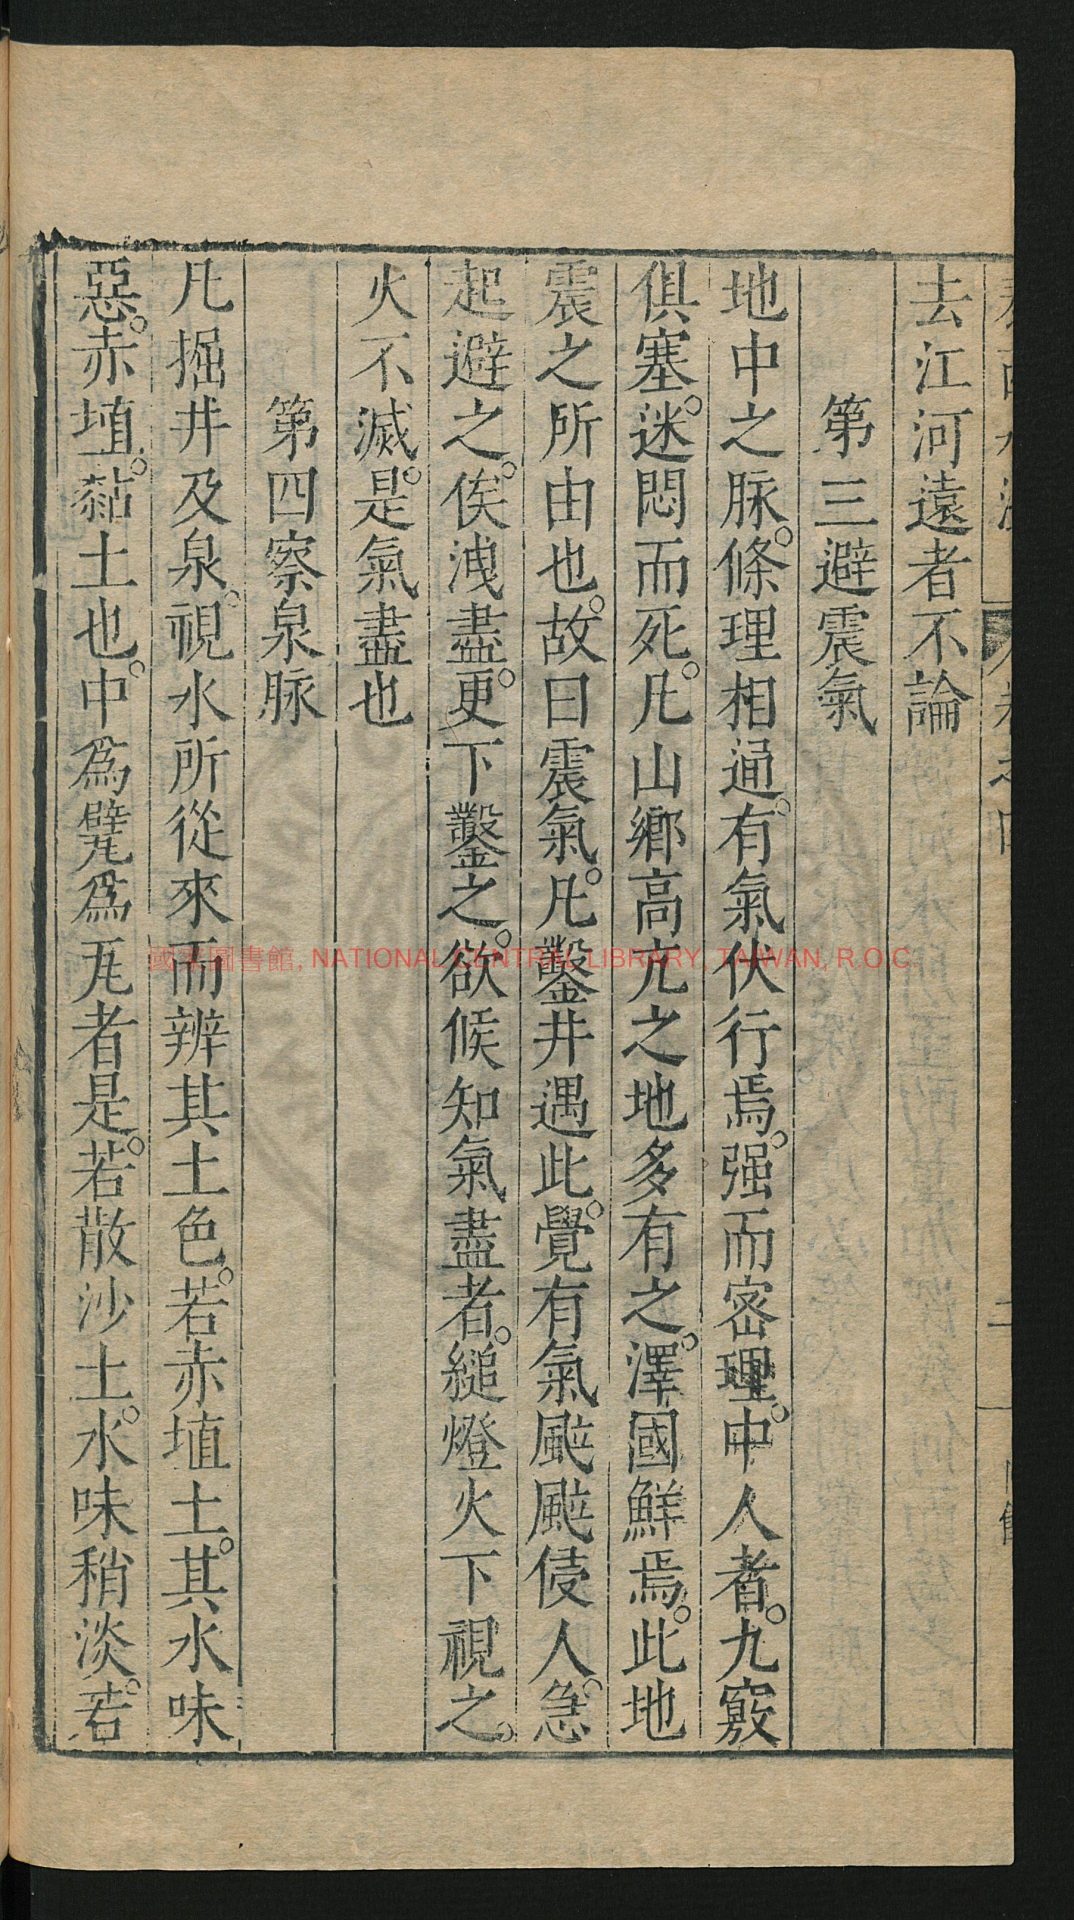 去江河遠者不論
第三避震氣
地中之脉。條理相通。有氣伏行焉。强而密理。中人者。九竅
俱塞。迷悶而死。凡山鄉高亢之地多有之。澤國鮮焉。此地
震之所由也。故曰震氣。凡鑿井遇此。覺有氣颼颼侵人。急
起避之。俟洩盡。更下鑿之。欲候知氣盡者。縋燈火下視之。
火不滅。是氣盡也
第四察泉脉
凡掘井及泉。視水所從來而辨其土色。若赤埴土。其水味
惡。赤埴。黏土也。中為甓為瓦者是。若散沙土。水味稍淡。若
國家圖書館, NATIONAL CENTRAL LIBRARY, TAIWAN, R.O.C